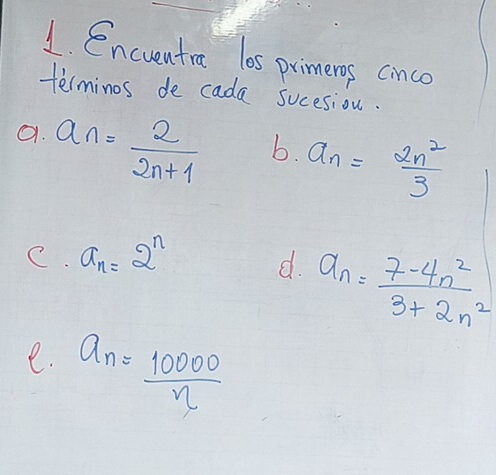 1. Encuentra los primeros cinco
términos de cada sucesion.
a. an = 2/(2n+1) b. an = 2n²/3
c. an = 2ⁿ d. an = (7-4n²)/(3+2n²)
e. an = 10000/n